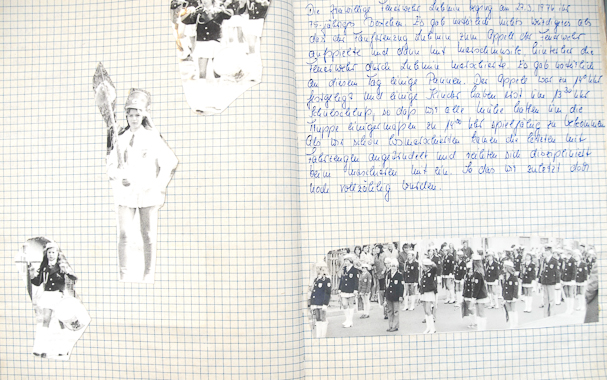 Die freiwillige Feuerwehr Lubmin beging am 27.3.1976 ihr
75-jähriges Bestehen. Es gab natürlich nichts wichtigeres als
daß der Fanfarenzug Lubmin zum Appell der Feuerwehr
aufspielte und dann mit Marschmusik hinterher die
Feuerwehr durch Lubmin marschierte. Es gab natürlich
an diesem Tag einige Pannen. Der Appell war zu 14⁰⁰ Uhr
festgelegt und einige Kinder haben erst um 13³⁰ Uhr
Schulschluß, so daß wir alle Mühe hatten um die
Truppe einigermaßen zu 14⁰⁰ Uhr spielfähig zu bekommen.
Als wir schon losmarschierten kamen die letzten mit
Fahrzeugen angetrudelt und reihten sich diszipliniert
beim marschieren mit ein. So das wir zuletzt doch
noch vollzählig wurden.